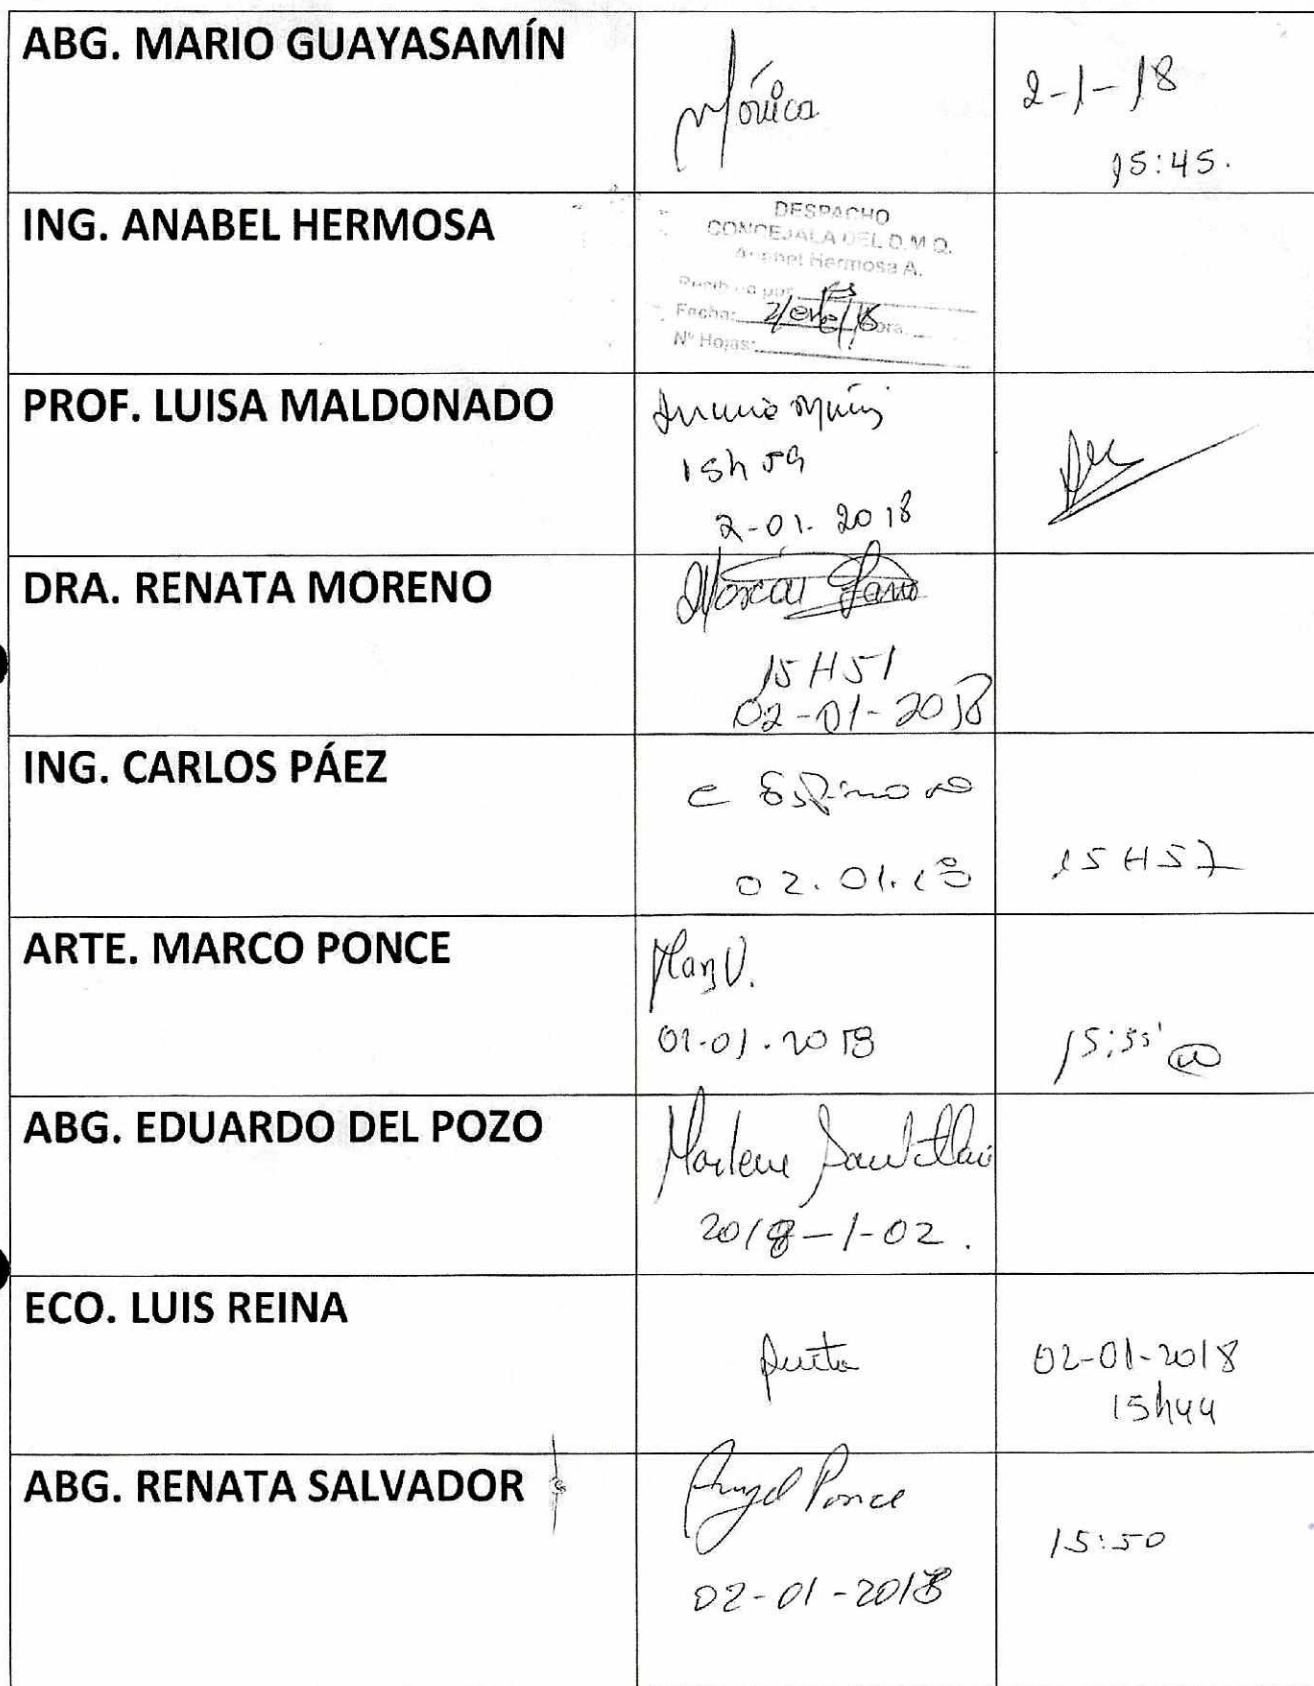 ABG. MARIO GUAYASAMÍN
Mónica
2-1-18
15:45.
ING. ANABEL HERMOSA
DESPACHO
CONCEJALA DEL D.M.Q.
Anabel Hermosa A.
Recibido por:
Fecha: 2/ene/18 Hora:
Nº Hojas:
PROF. LUISA MALDONADO
15h59
2-01-2018
DRA. RENATA MORENO
15H51
02-01-2018
ING. CARLOS PÁEZ
e Espinosa
02.01.18
15H57
ARTE. MARCO PONCE
02-01-2018
15:55'
ABG. EDUARDO DEL POZO
Marlene Santillan
2018-1-02.
ECO. LUIS REINA
02-01-2018
15h44
ABG. RENATA SALVADOR
Angel Ponce
15:50
02-01-2018